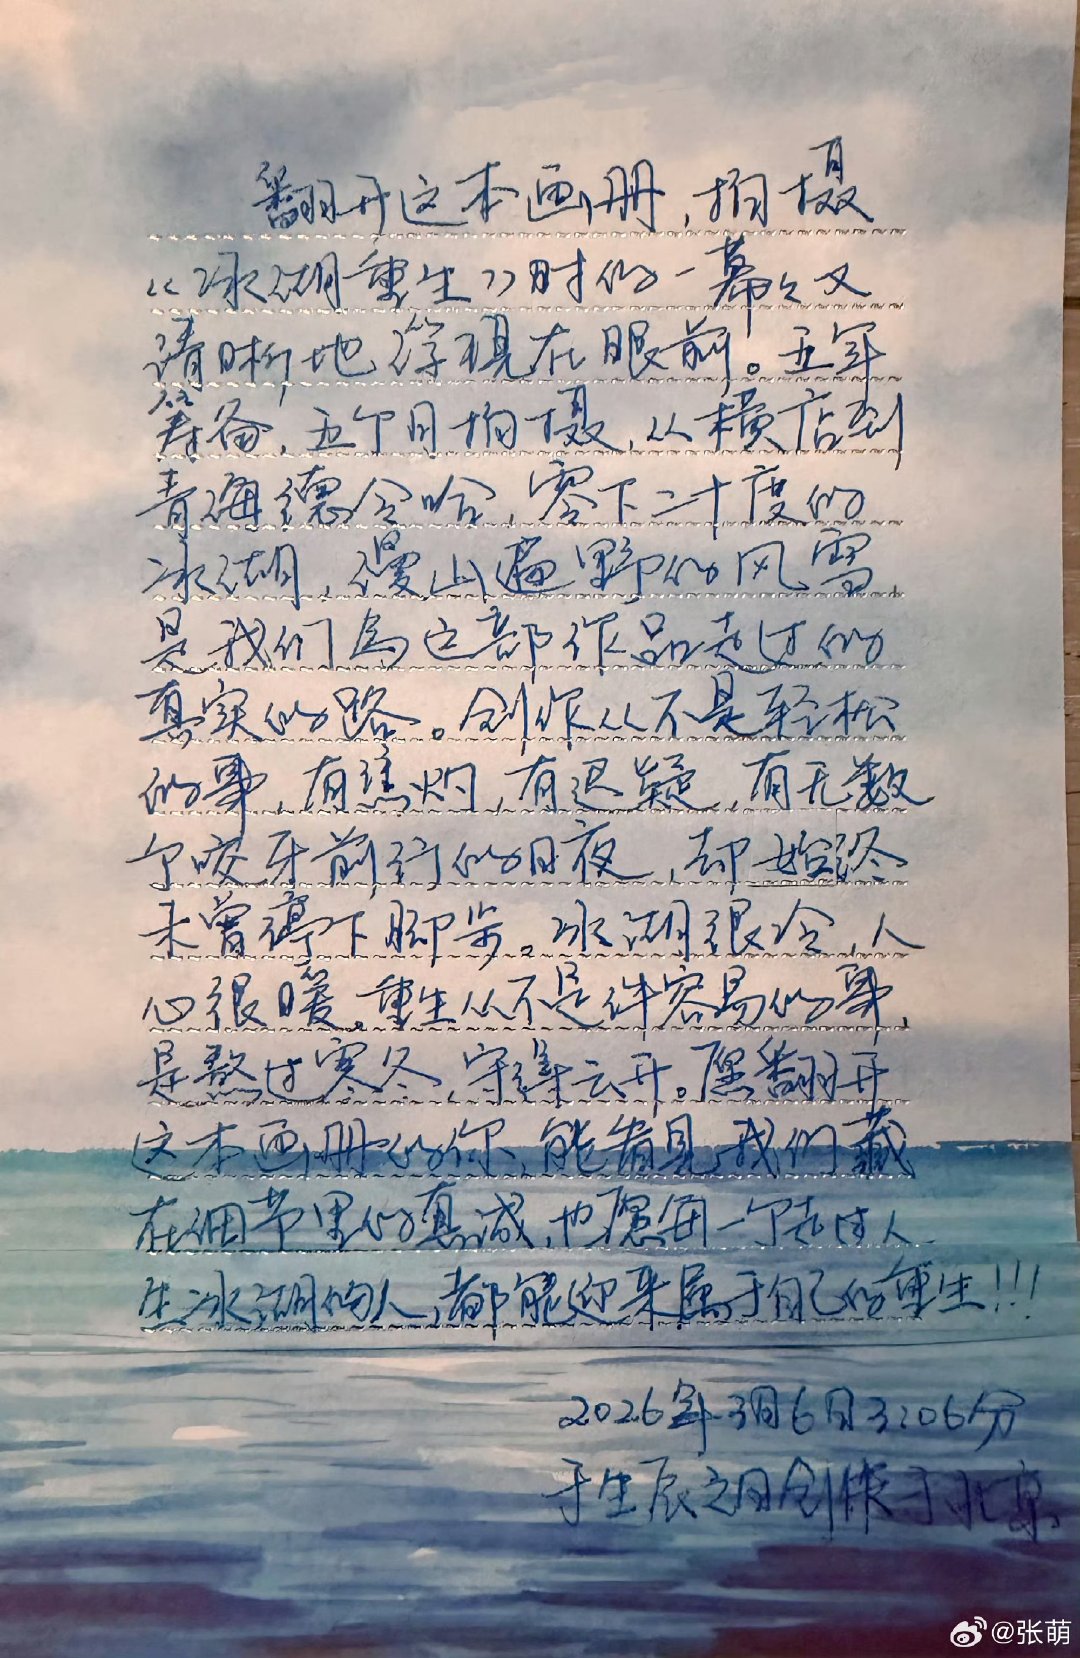 翻开这本画册,拍摄
《冰湖重生》时的一幕幕又
清晰地浮现在眼前。五年
筹备,五个月拍摄,从横店到
青海德令哈,零下二十度的
冰湖,漫山遍野的风雪,
是我们为这部作品走过的
真实的路。创作从不是轻松
的事,有焦灼,有迟疑,有无数
个咬牙前行的日夜,却始终
未曾停下脚步。冰湖很冷,人
心很暖,重生从不是件容易的事,
是熬过寒冬,守得云开。愿翻开
这本画册的你,能看见我们藏
在细节里的真诚,也愿每一个走过人
生冰湖的人,都能迎来属于自己的重生!!!
2026年3月6日3:06分
于生辰之月创作于北京
@张萌